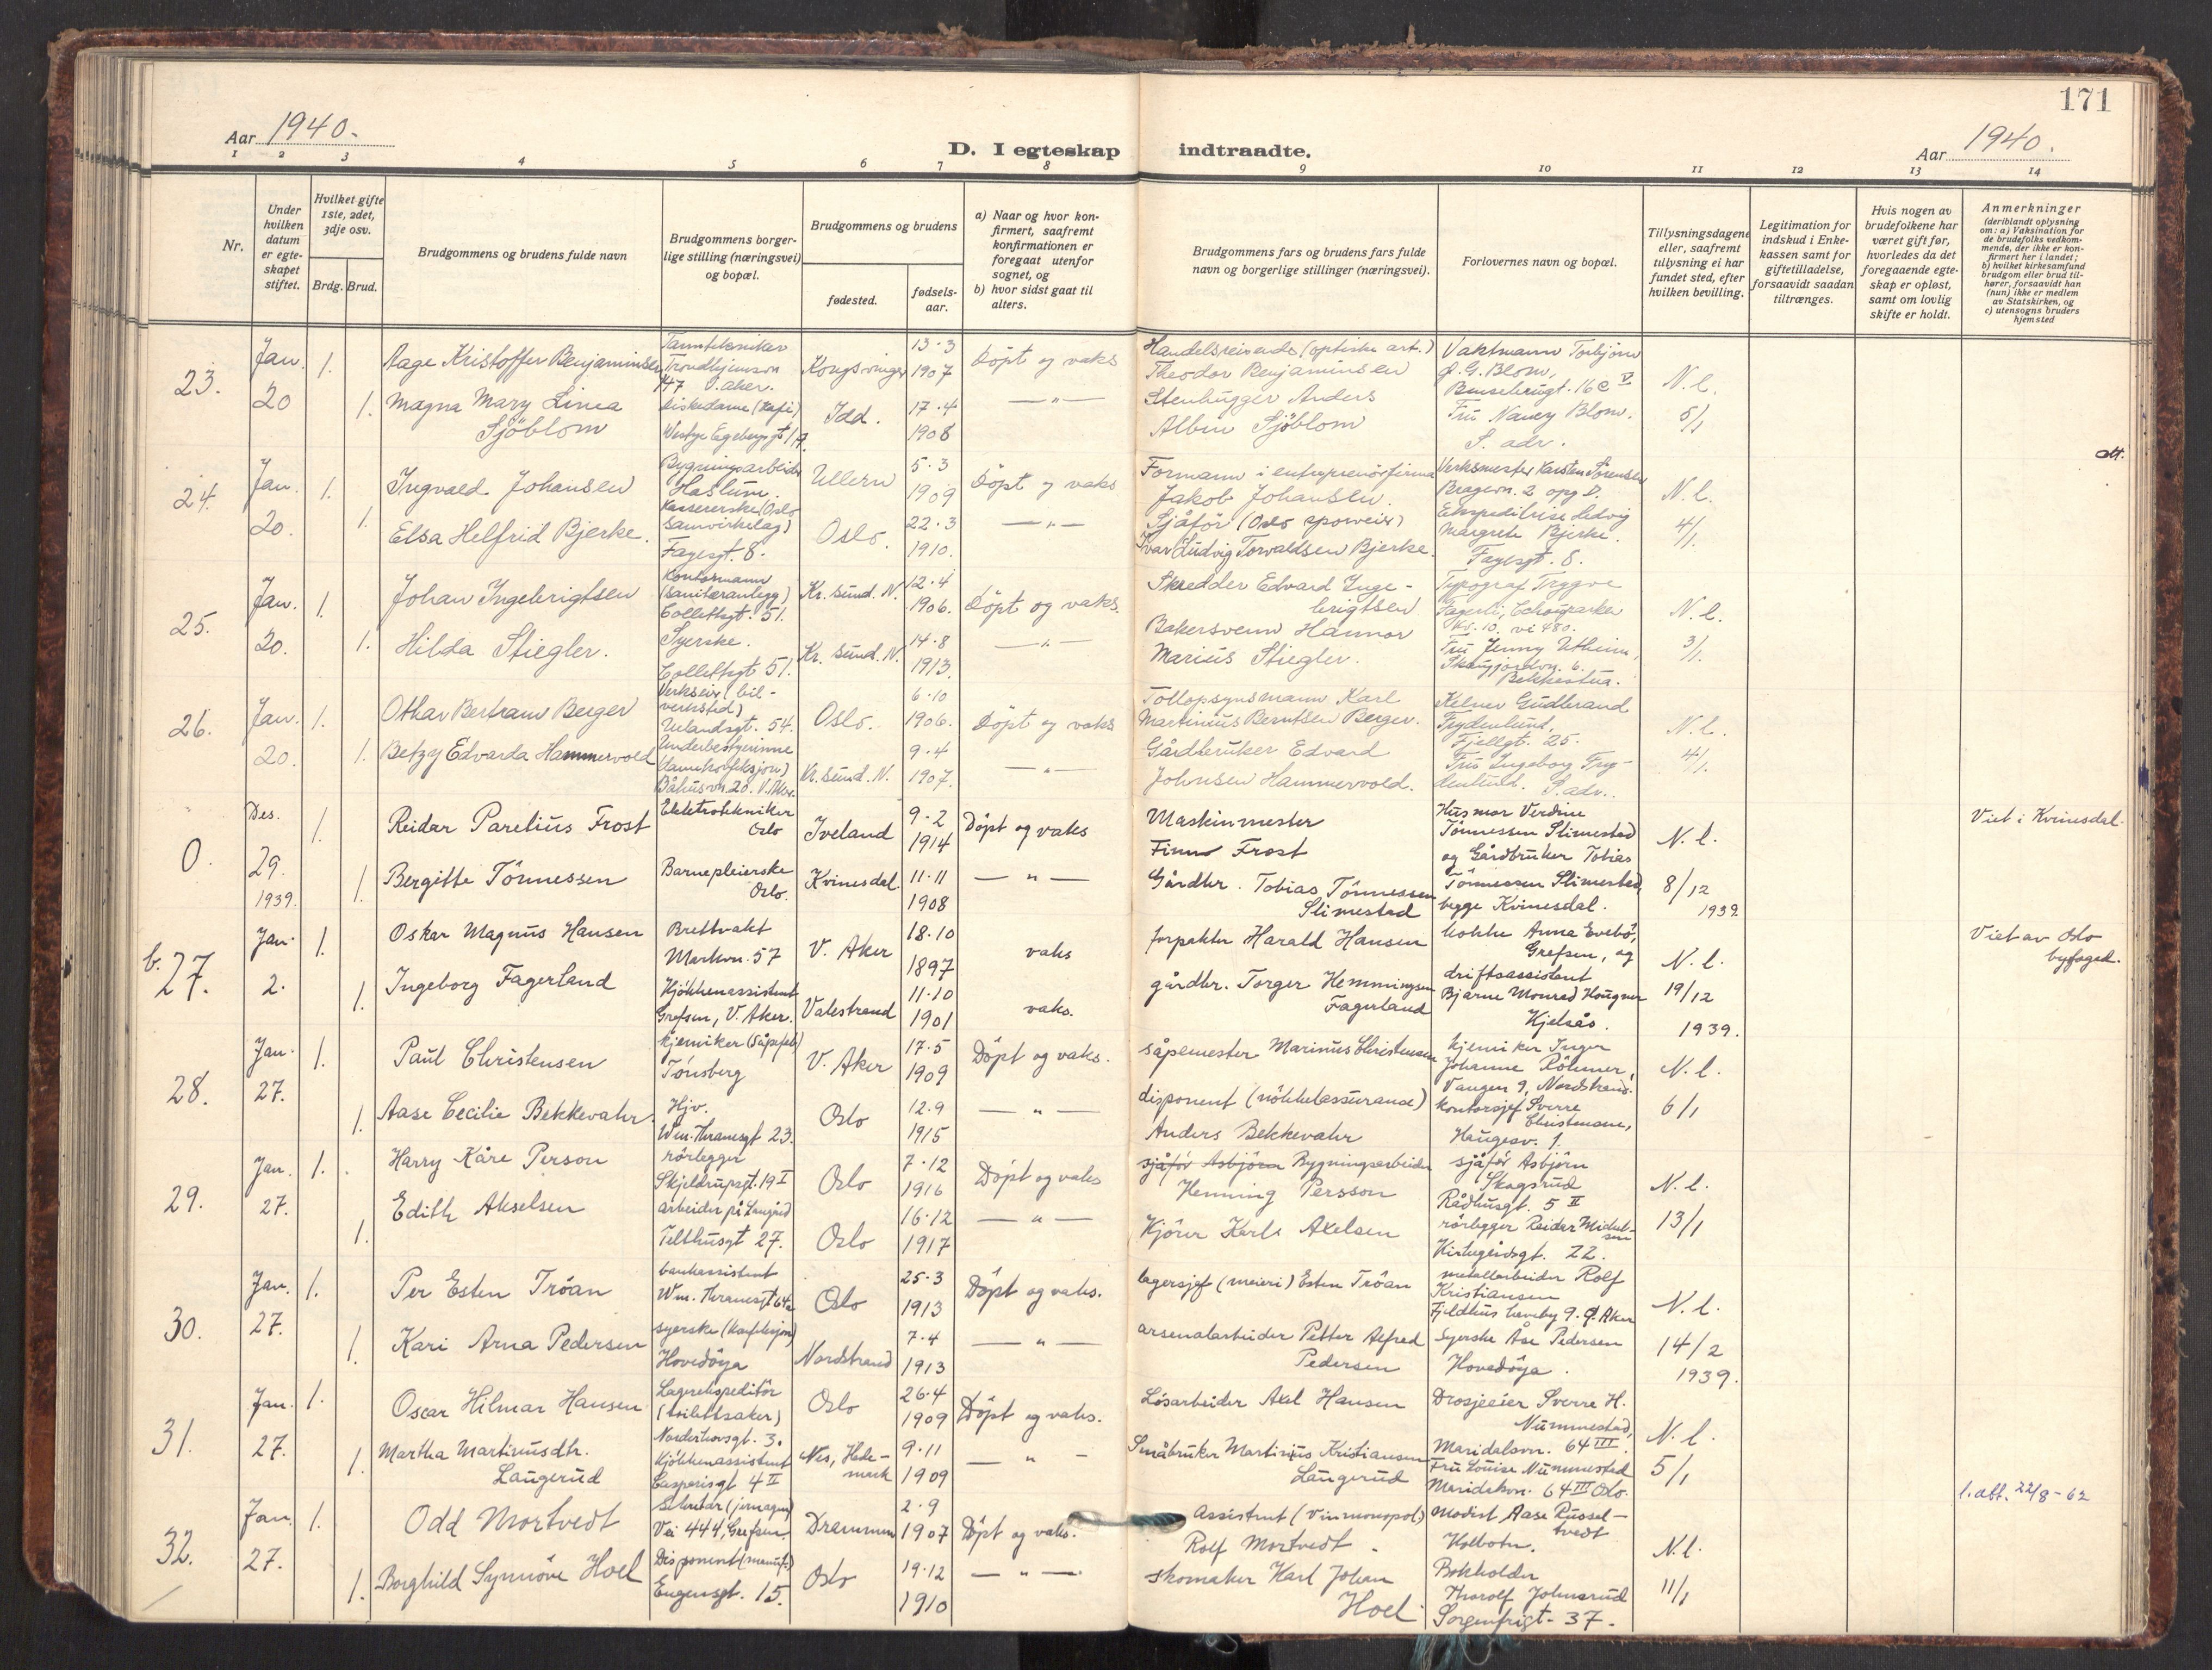 171
Aar 1940.
D. I egteskap indtraadte.
Aar 1940.
1 2 3 4 5 6 7 8 9 10 11 12 13 14
Nr.
Under hvilken datum er egteskapet stiftet.
Hvilket gifte 1ste, 2det, 3dje osv.
Brdg. Brud.
Brudgommens og brudens fulde navn
Brudgommens borgerlige stilling (næringsvei) og bopæl.
Brudgommens og brudens
fødested.
fødselsaar.
a) Naar og hvor konfirmert, saafremt konfirmationen er foregaat utenfor sognet, og
b) hvor sidst gaat til alters.
Brudgommens fars og brudens fars fulde navn og borgerlige stillinger (næringsvei).
Forlovernes navn og bopæl.
Tillysningsdagene eller, saafremt tillysning ei har fundet sted, efter hvilken bevilling.
Legitimation for indskud i Enkekassen samt for giftetilladelse, forsaavidt saadan tiltrænges.
Hvis nogen av brudefolkene har været gift før, hvorledes da det foregaaende egteskap er opløst, samt om lovlig skifte er holdt.
Anmerkninger
(deriblandt oplysning om: a) Vaksination for de brudefolks vedkommende, der ikke er konfirmert her i landet; b) hvilket kirkesamfund brudgom eller brud tilhører, forsaavidt han (hun) ikke er medlem av Statskirken, og c) utensogns bruders hjemsted
23. Jan. 20
1. Aage Kristoffer Benjaminsen
Tanntekniker
Trondhjemsvn 47 V. Aker.
Kongsvinger
13-3 1907
Döpt og vaks
Handelsreisende (optiske art.)
Theodor Benjaminsen
Vaktmann Torbjörn
G. Blom,
16 c V
N.l.
5/1
1. Magna Mary Linea
Sjöblom
Diskedame (Kafé)
Westye Egebergsgt
Idd.
17-4 1908
— " —
Stenhugger Anders
Albin Sjöblom
Fru Nancy Blom.
S. adr.
att.
24. Jan. 20.
1. Ingvald Johansen
Bygningsarbeider
Haslum.
Ullern
5-3 1909
Döpt og vaks
Formann i entreprenörfirma
Jakob Johansen.
Verksmester Karsten Sörensen
Bragevn. 2 opg D.
N.l.
4/1
1. Elsa Helfrid Bjerke.
Kassererske (Oslo
Samvirkelag)
Fagesgt. 8.
Oslo.
22-3 1910.
— " —
Sjåför (Oslo sporveier)
Ivar Ludvig Torvaldsen Bjerke.
Ekspeditrise Hedvig
Margrete Bjerke.
Fagesgt. 8.
25. Jan. 20.
1. Johan Ingebrigtsen
Kontormann
(Sanitæranlegg)
Collettsgt. 51.
Kr. sund. N.
12-4 1906.
Döpt og vaks.
Skredder Edvard Inge-
brigtsen
Typograf Trygve
Fagerli,
vi 480.
N.l.
3/1
1. Hilda Stiegler.
Syerske.
Collettsgt. 51.
Kr. sund. N.
14-8 1913.
— " —
Bakersvenn
Marius Stiegler.
Fru Jenny Utheim,
6.
Bekkestua.
26. Jan. 20.
1. Othar Bertram Berger
Verkseier (bil-
verksted)
Uelandsgt. 54.
Oslo.
6-10 1906.
Döpt og vaks
Tollopsynsmann Karl
Martinius Berntsen Berger.
Kelner Gudbrand
Frydenlund,
Fjellgt. 25.
N.l.
4/1.
1. Betzy Edvarda Hammervold
Underbestyrerinne
(Damekonfeksjon)
Båhusvn. 20. V. Aker.
Kr. sund. N.
9-4 1907.
— " —
Gårdbruker Edvard
Johnsen Hammervold.
Fru Ingeborg Fry-
denlund. S. adr.
0. Des. 29. 1939.
1. Reidar Parelius Frost
Elektrotekniker
Oslo
Iveland
9-2 1914
Döpt og vaks
Maskinmester
Finn Frost
Husmor Verdine
Tönnessen Slimestad
og Gårdbruker Tobias
Tönnessen Slimestad,
begge Kvinesdal.
N.l.
8/12 1939.
Viet i Kvinesdal.
1. Bergitte Tönnessen
Barnepleierske
Oslo.
Kvinesdal
11-11 1908
— " —
Gårdbr. Tobias Tönnessen
Slimestad
b. 27. Jan. 2.
1. Oskar Magnus Hansen
Brettvakt
Markvn. 57
V. Aker
18-10 1897
vaks
forpakter Harald Hansen
kokke Anna Evebö,
Grefsen, og
driftsassistent
Bjarne Monrad Hougner
Kjelsås.
N.l.
19/12 1939.
Viet av Oslo
byfoged.
1. Ingeborg Fagerland
Kjökkenassistent
Grefsen, V. Aker.
Valestrand
11-10 1901
vaks.
gårdbr. Torger Hemmingsen
Fagerland
28. Jan. 27.
1. Paul Christensen
kjemiker (Såpefab)
Tönsberg
V. Aker
17-5 1909
Döpt og vaks.
såpemester Marinus Christensen
kjemiker Inger
Johanne Röhmer,
Vangen 9, Nordstrand.
N.l.
6/1
1. Aase Cecilie Bekkevahr.
Hjv.
Wm. Thranesgt 23.
Oslo
12-9 1915
— " —
disponent (nökkelassuranse)
Anders Bekkevahr
kontorsjef Sverre
Christensen,
Haugesv. 1.
29. Jan. 27.
1. Harry Kåre Person
rörlegger
Skjeldrupsgt. 19 I
Oslo
7-12 1916
Döpt og vaks
sjåför Asbjörn Bygningsarbeider
Henning Persson
sjåför Asbjörn
Skogsrud
Rådhusgt. 5 II
N.l.
13/1
1. Edith Akselsen
Telthusgt 27.
Oslo
16-12 1917
— " —
Kjörer Karl Axelsen
rörlegger Reidar Mickel-
sen
Kirkegårdsgt. 22.
30. Jan. 27.
1. Per Esten Tröan
bankassistent
Wm. Thranesgt 64a
Oslo
25-3 1913
Döpt og vaks.
lagersjef (meieri) Esten Tröan
metallarbeider Rolf
Kristiansen
N.l.
14/2 1939.
1. Kari Arna Pedersen
syerske (konfeksjon)
Hovedöya
Nordstrand
7-4 1913
— " —
arsenalarbeider Petter Alfred
Pedersen
Syerske Åse Pedersen
Hovedöya.
31. Jan. 27.
1. Oscar Hilmar Hansen
Lagerekspeditör
(toilettsaker)
Norderhovsgt. 3.
Oslo
26-4 1909
Döpt og vaks.
Lösarbeider Axel Hansen
Drosjeeier Sverre H.
Nummestad,
Maridalsvn. 64 III.
N.l.
5/1
1. Martha Martinusdtr.
Laugerud
Kjökkenassistent
Casparisgt 4 II
Nes, Hede-
mark
9-11 1909
— " —
Småbruker Martinius Kristiansen
Laugerud
Fru Louise Nummestad
Maridalsvn. 64 III Oslo.
l. att. 22/8-62
32. Jan. 27.
1. Odd Mortvedt
Sekretær (jernvaren)
Vei 444, Grefsen.
Drammen
2-9 1907
Döpt og vaks.
Assistent (Vinmonopol)
Rolf Mortvedt.
Modist Aase Russel-
tvedt
Kolbotn.
N.l.
11/1
1. Borghild Synnöve Hoel
Disponent (manuf.)
Eugensgt. 15.
Oslo
19-12 1910
— " —
skomaker Karl Johan
Hoel
Bokholder
Thorolf Johnsrud
Sorgenfrigt. 37.